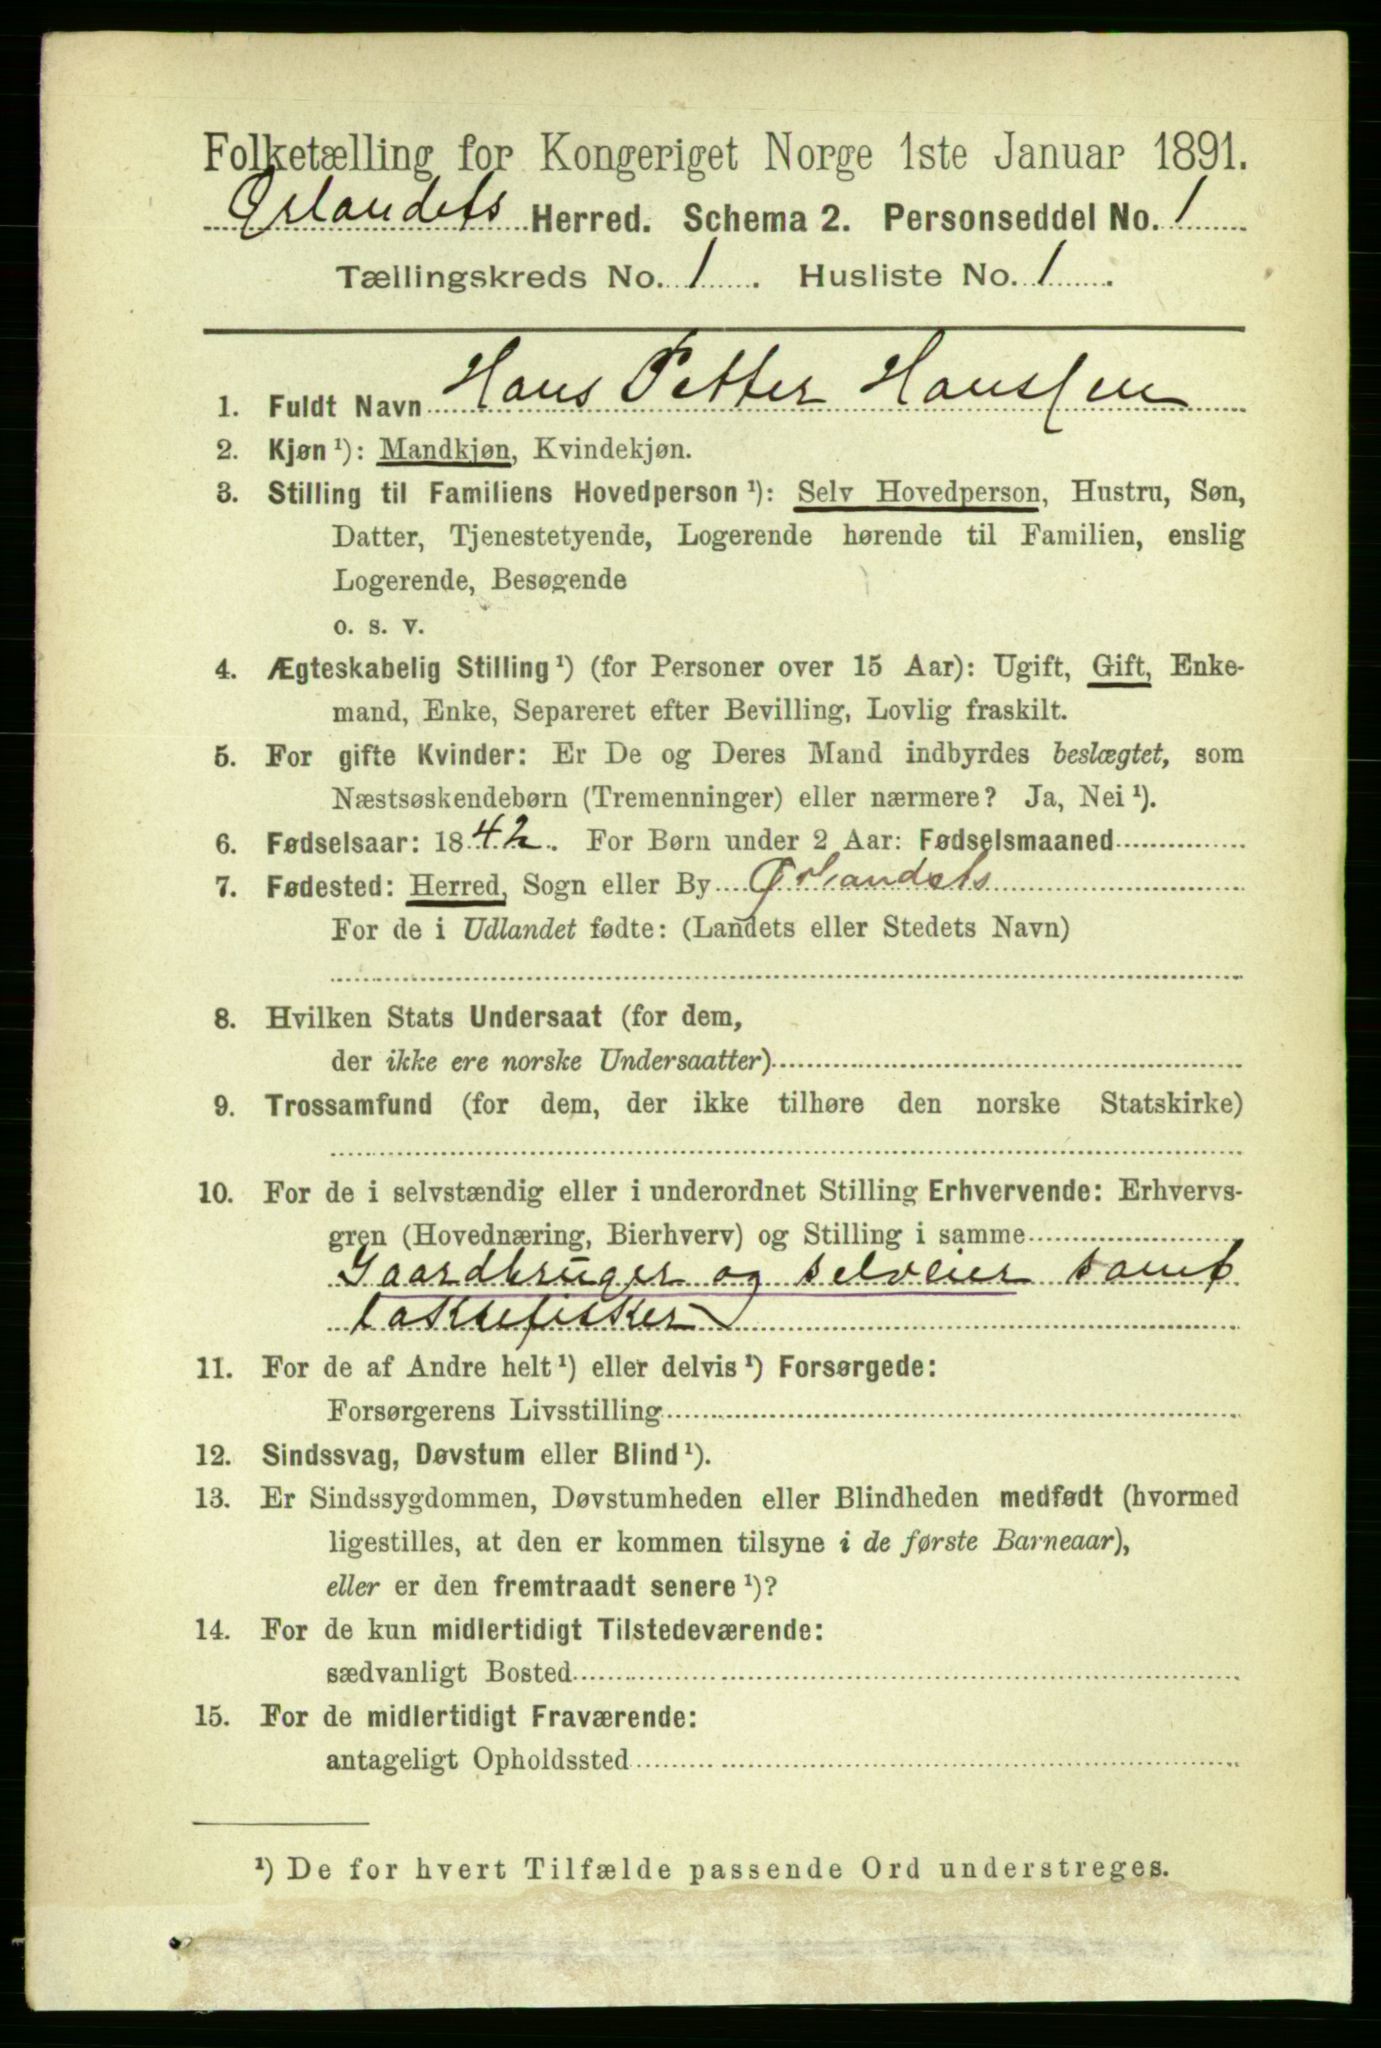 Folketælling for Kongeriget Norge 1ste Januar 1891.
Ørlandets Herred. Schema 2. Personseddel No. 1
Tællingskreds No. 1. Husliste No. 1.
1. Fuldt Navn Hans Petter Hanssen
2. Kjøn¹): Mandkjøn, Kvindekjøn.
3. Stilling til Familiens Hovedperson¹): Selv Hovedperson, Hustru, Søn,
Datter, Tjenestetyende, Logerende hørende til Familien, enslig
Logerende, Besøgende
o. s. v.
4. Ægteskabelig Stilling¹) (for Personer over 15 Aar): Ugift, Gift, Enke-
mand, Enke, Separeret efter Bevilling, Lovlig fraskilt.
5. For gifte Kvinder: Er De og Deres Mand indbyrdes beslægtet, som
Næstsøskendebørn (Tremenninger) eller nærmere? Ja, Nei¹).
6. Fødselsaar: 1842. For Børn under 2 Aar: Fødselsmaaned
7. Fødested: Herred, Sogn eller By Ørlandets
For de i Udlandet fødte: (Landets eller Stedets Navn)
8. Hvilken Stats Undersaat (for dem,
der ikke ere norske Undersaatter)
9. Trossamfund (for dem, der ikke tilhøre den norske Statskirke)
10. For de i selvstændig eller i underordnet Stilling Erhvervende: Erhvervs-
gren (Hovednæring, Bierhverv) og Stilling i samme
Gaardbruger og selveier samt
laksefisker
11. For de af Andre helt¹) eller delvis¹) Forsørgede:
Forsørgerens Livsstilling
12. Sindssvag, Døvstum eller Blind¹).
13. Er Sindssygdommen, Døvstumheden eller Blindheden medfødt (hvormed
ligestilles, at den er kommen tilsyne i de første Barneaar),
eller er den fremtraadt senere¹)?
14. For de kun midlertidigt Tilstedeværende:
sædvanligt Bosted
15. For de midlertidigt Fraværende:
antageligt Opholdssted
¹) De for hvert Tilfælde passende Ord understreges.